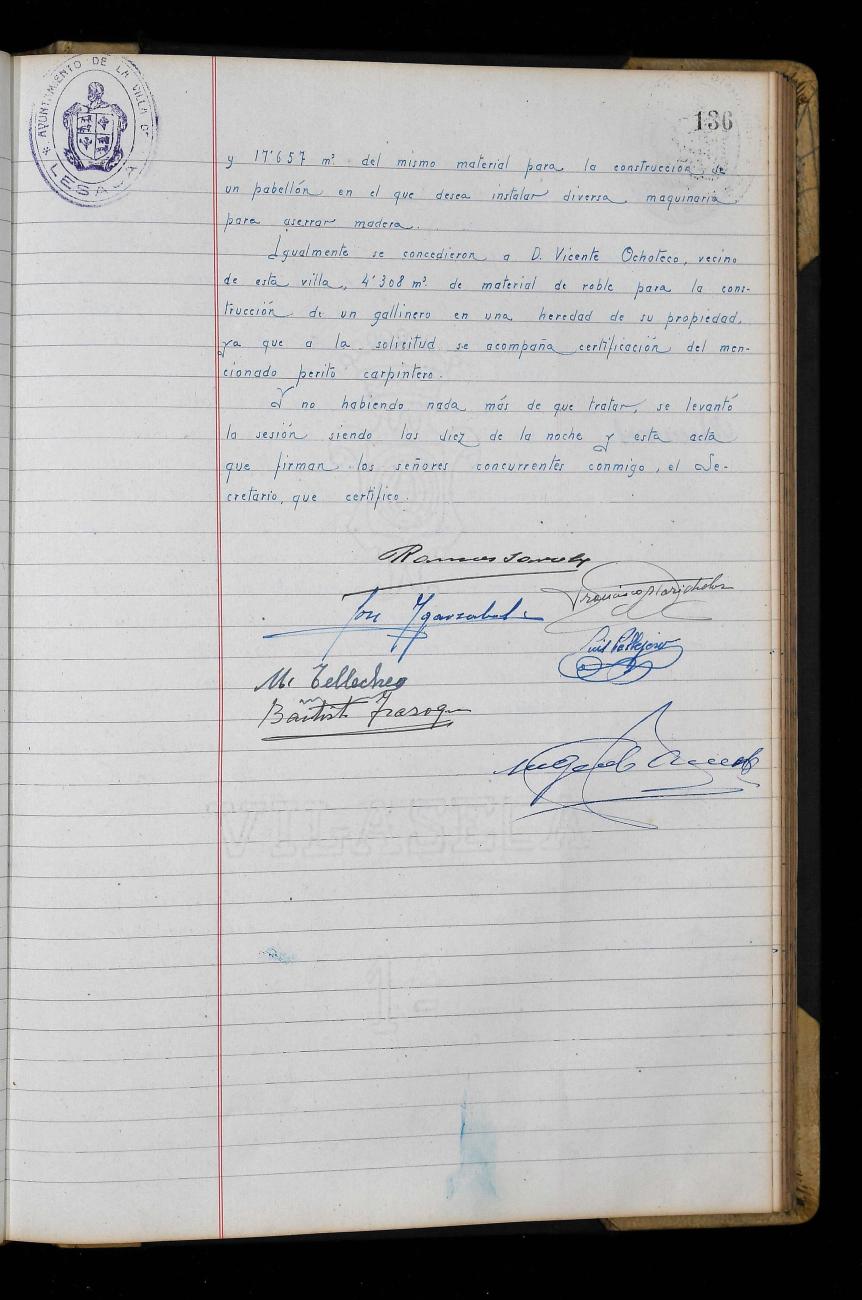 AYUNTAMIENTO DE LA VILLA DE
LESACA
136
y 17'657 m³ del mismo material para la construcción de
un pabellón en el que desea instalar diversa maquinaria
para aserrar madera.
Igualmente se concedieron a D. Vicente Ochoteco, vecino
de esta villa, 4'308 m³. de material de roble para la cons-
trucción de un gallinero en una heredad de su propiedad,
ya que a la solicitud se acompaña certificación del men-
cionado perito carpintero.
Y no habiendo nada más de que tratar, se levantó
la sesión siendo las diez de la noche y esta acta
que firman los señores concurrentes conmigo, el Se-
cretario, que certifico.
Ramon
Francisco
José Ygarzabal
Luis
M. Tellechea
Bautista
VILASECA
1ª